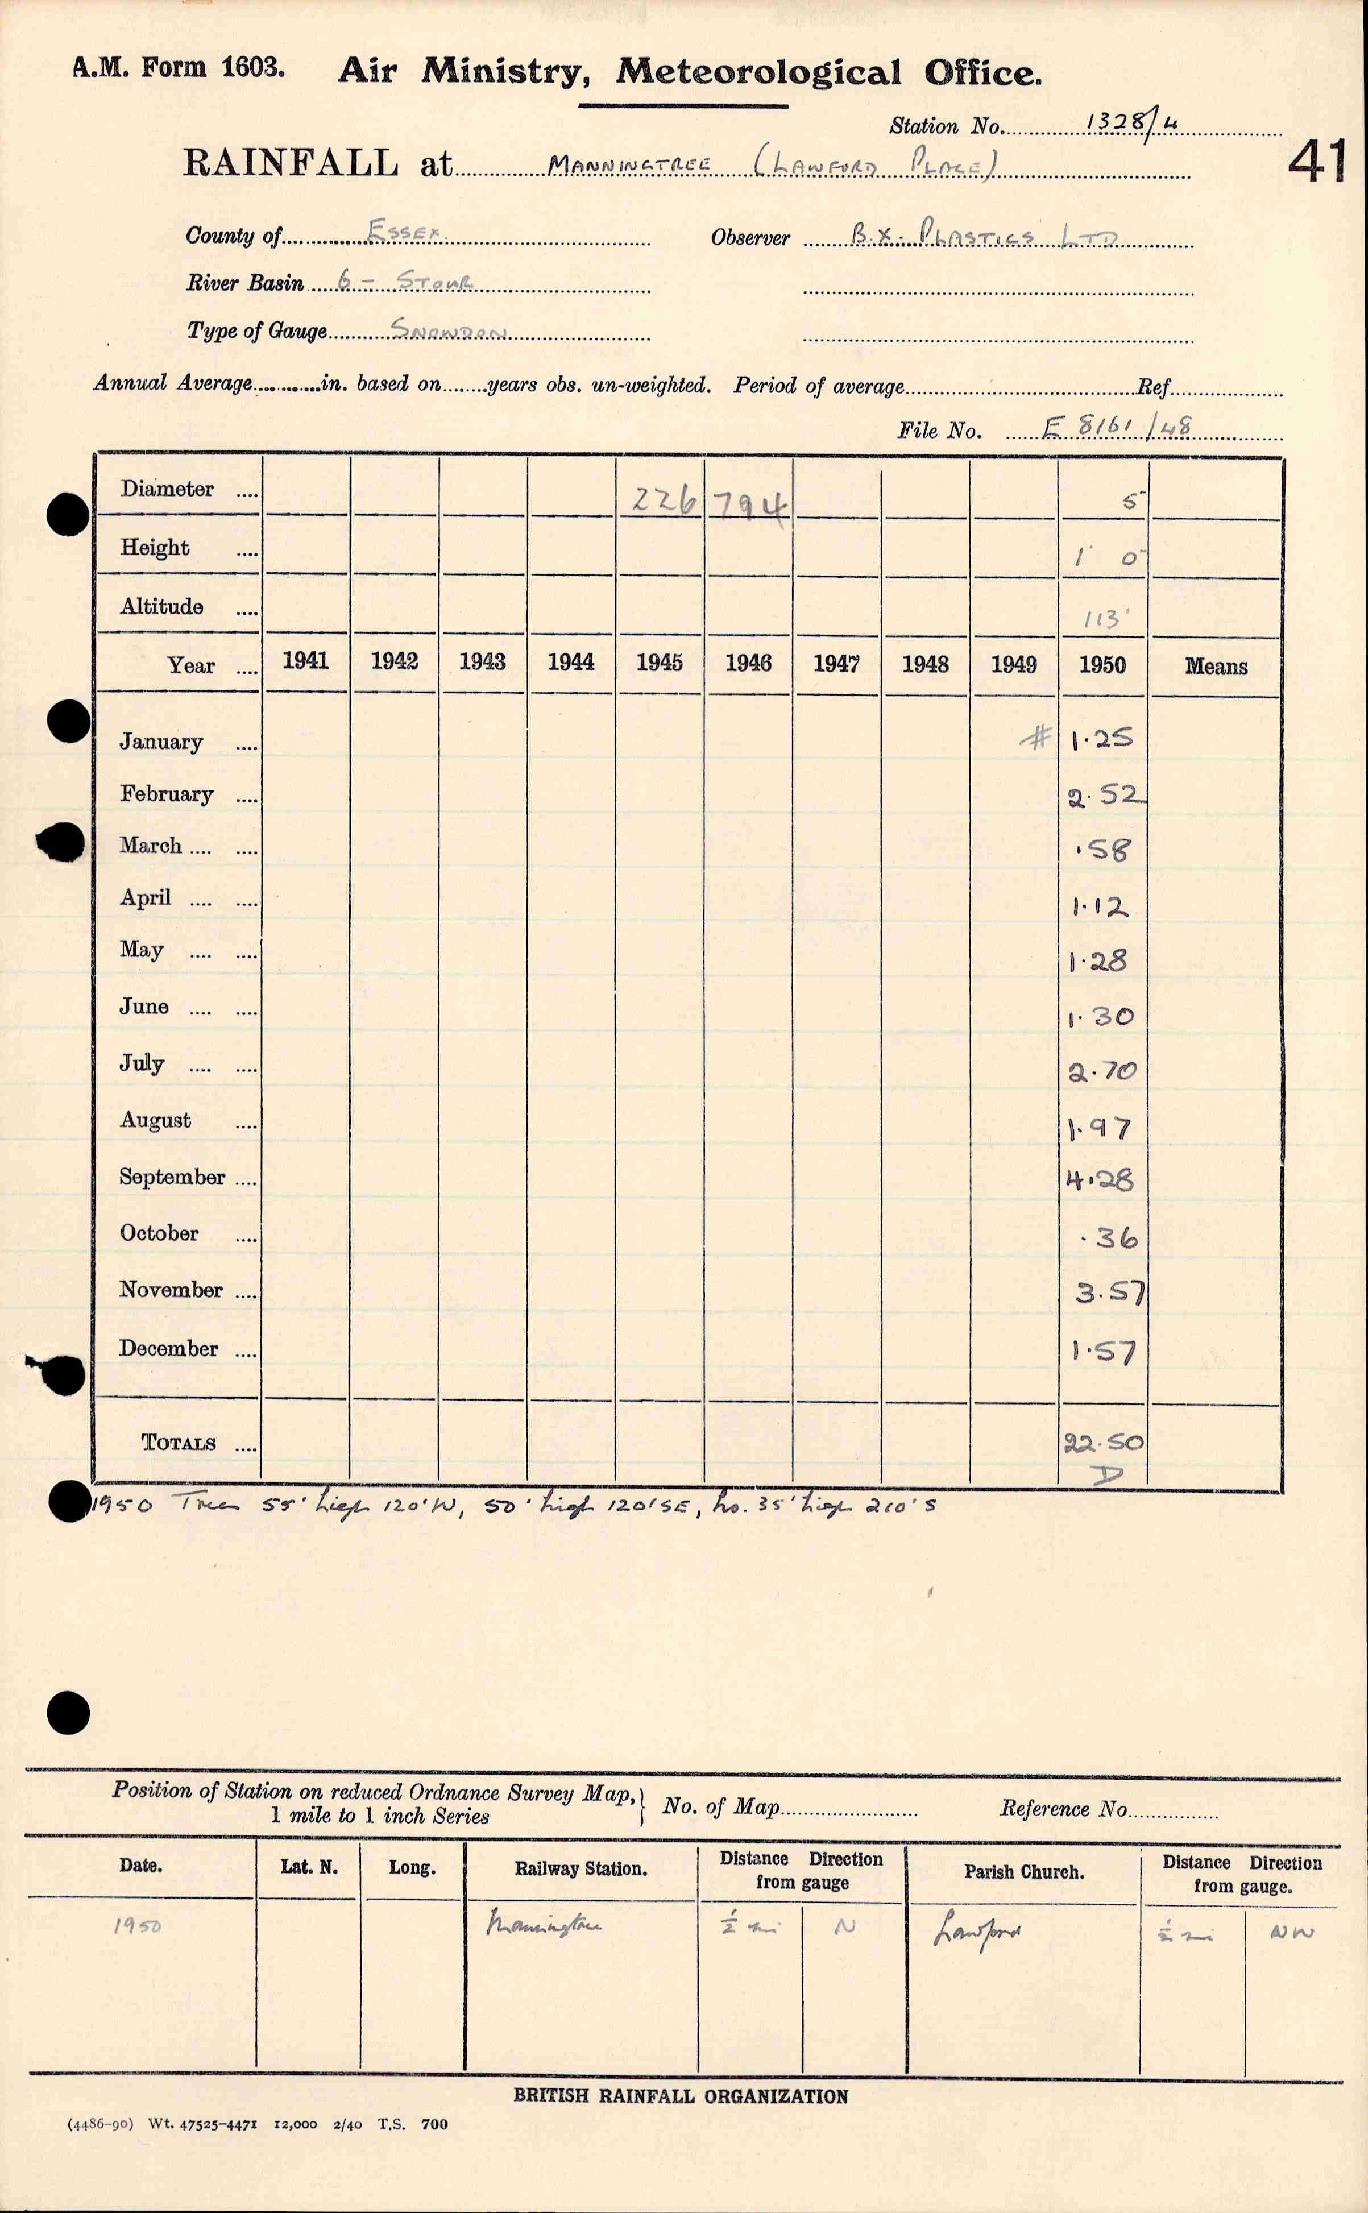 A.M. Form 1603. Air Ministry, Meteorological Office.
Station No. 1328/4
RAINFALL at MANNINGTREE (LAWFORD PLACE)
41
County of ESSEX. Observer B.X. PLASTICS LTD
River Basin 6 - STOUR
Type of Gauge SNOWDON
Annual Average in. based on years obs. un-weighted. Period of average Ref.
File No. E 8161/48
Diameter .... 226 794 5"
Height .... 1' 0"
Altitude .... 113'
Year .... 1941 1942 1943 1944 1945 1946 1947 1948 1949 1950 Means
January .... # 1.25
February .... 2.52
March .... .... .58
April .... .... 1.12
May .... .... 1.28
June .... .... 1.30
July .... .... 2.70
August .... 1.97
September .... 4.28
October .... .36
November .... 3.57
December .... 1.57
TOTALS .... 22.50
D
1950 Trees 55' high 120'W, 50' high 120'SE, ho. 35' high 210'S
Position of Station on reduced Ordnance Survey Map, } No. of Map Reference No.
1 mile to 1 inch Series
Date. Lat. N. Long. Railway Station. Distance Direction from gauge Parish Church. Distance Direction from gauge.
1950 Manningtree ½ mi N Lawford ½ mi NW
BRITISH RAINFALL ORGANIZATION
(4486-90) Wt. 47525-4471 12,000 2/40 T.S. 700